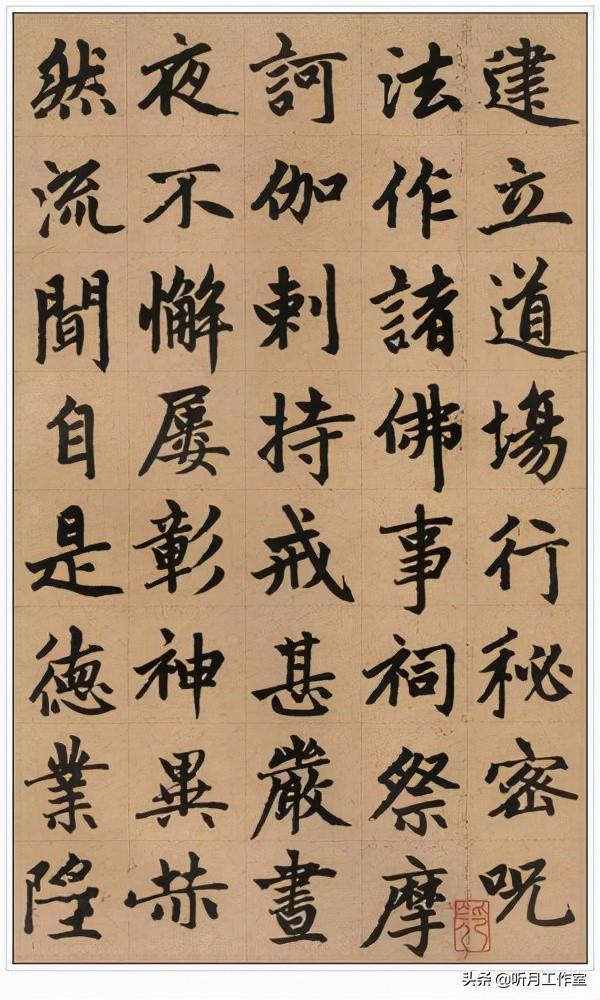 建立道場行秘密呪
法作諸佛事祠祭摩
訶伽剌持戒甚嚴晝
夜不懈屢彰神異赫
然流聞自是徳業隆
头条 @听月工作室